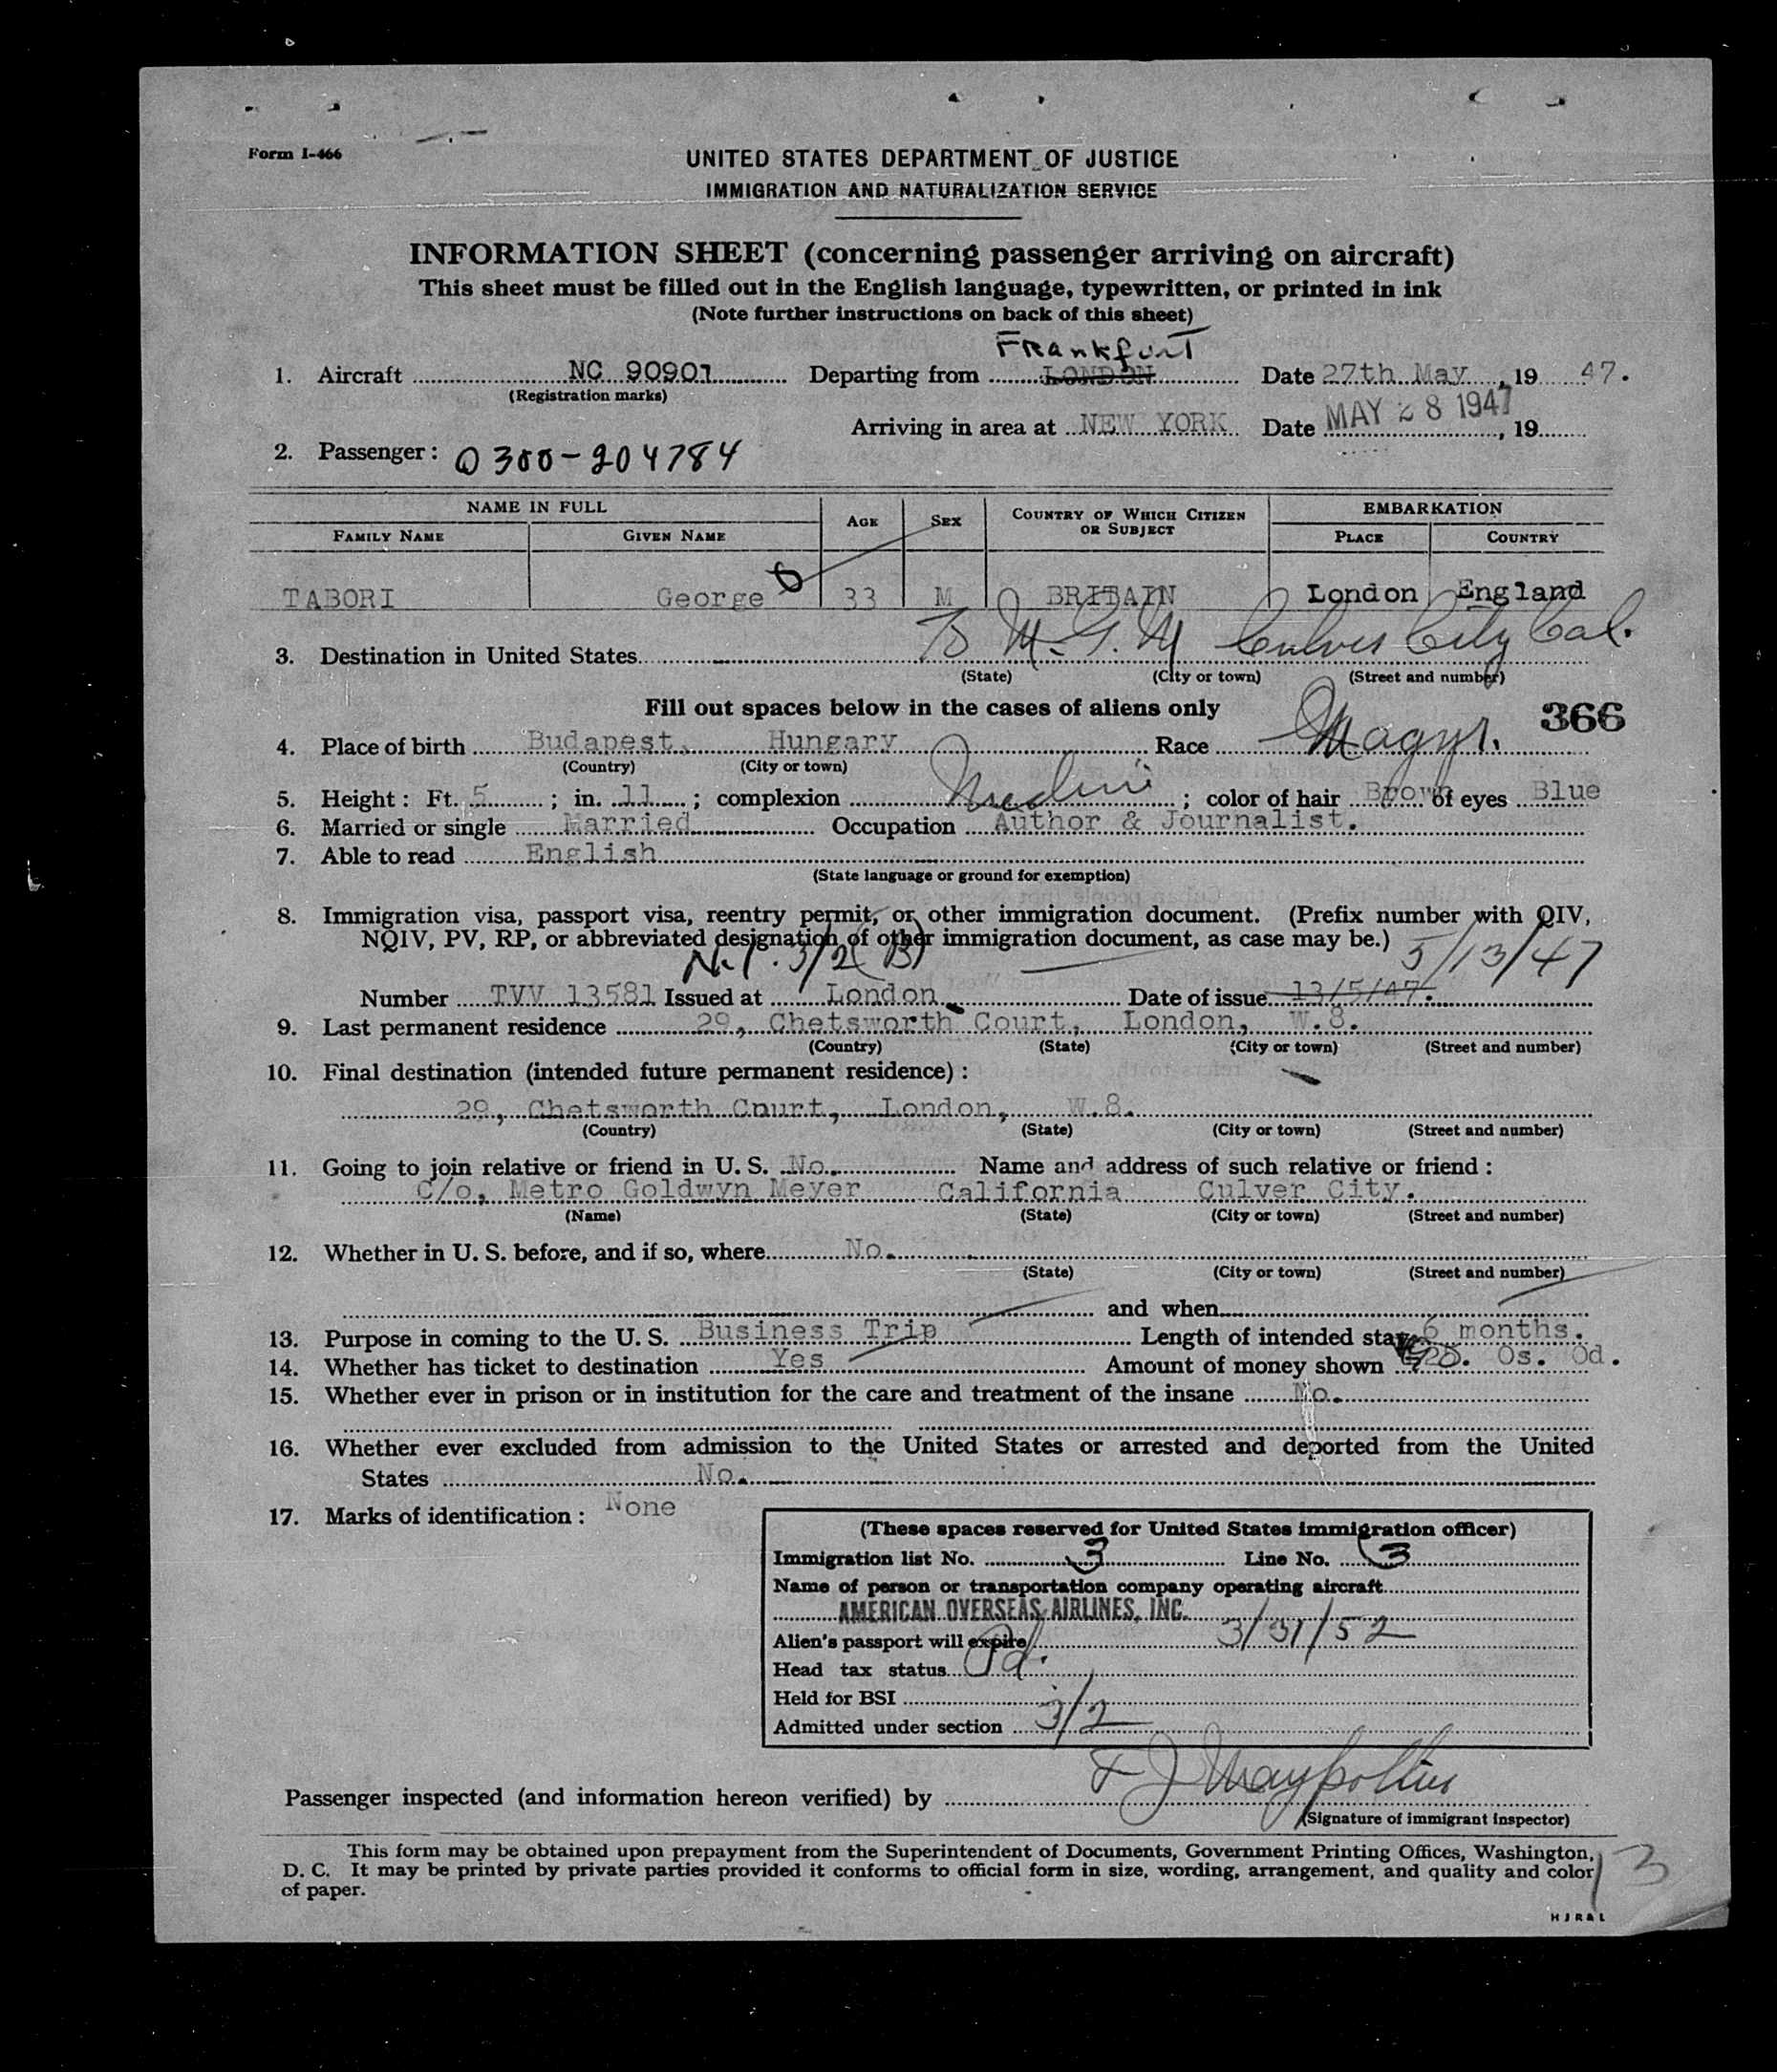 Form I-466
UNITED STATES DEPARTMENT OF JUSTICE
IMMIGRATION AND NATURALIZATION SERVICE
INFORMATION SHEET (concerning passenger arriving on aircraft)
This sheet must be filled out in the English language, typewritten, or printed in ink
(Note further instructions on back of this sheet)
Frankfurt
1. Aircraft NC 90901 Departing from LONDON Date 27th May, 19 47.
(Registration marks)
Arriving in area at NEW YORK Date MAY 28 1947, 19
2. Passenger: 0300-204784
NAME IN FULL AGE SEX COUNTRY OF WHICH CITIZEN OR SUBJECT EMBARKATION
FAMILY NAME GIVEN NAME PLACE COUNTRY
TABORI George 33 M BRITAIN London England
3. Destination in United States To M.G.M Culver City Cal.
(State) (City or town) (Street and number)
Fill out spaces below in the cases of aliens only 366
4. Place of birth Budapest, Hungary Race Magyr.
(Country) (City or town)
5. Height: Ft. 5; in. 11; complexion ; color of hair Brown of eyes Blue
6. Married or single Married Occupation Author & Journalist.
7. Able to read English
(State language or ground for exemption)
8. Immigration visa, passport visa, reentry permit, or other immigration document. (Prefix number with QIV,
NQIV, PV, RP, or abbreviated designation of other immigration document, as case may be.)
3/2(B) 5/13/47
Number TVV 13581 Issued at London Date of issue 13/5/47.
9. Last permanent residence 29, Chetsworth Court, London, W.8.
(Country) (State) (City or town) (Street and number)
10. Final destination (intended future permanent residence):
29, Chetsworth Court, London, W.8.
(Country) (State) (City or town) (Street and number)
11. Going to join relative or friend in U. S. No. Name and address of such relative or friend:
C/o, Metro Goldwyn Meyer California Culver City.
(Name) (State) (City or town) (Street and number)
12. Whether in U. S. before, and if so, where No.
(State) (City or town) (Street and number)
and when
13. Purpose in coming to the U. S. Business Trip Length of intended stay 6 months.
14. Whether has ticket to destination Yes Amount of money shown 0s. 0d.
15. Whether ever in prison or in institution for the care and treatment of the insane No.
16. Whether ever excluded from admission to the United States or arrested and deported from the United
States No.
17. Marks of identification: None
(These spaces reserved for United States immigration officer)
Immigration list No. 3 Line No. 3
Name of person or transportation company operating aircraft
AMERICAN OVERSEAS AIRLINES, INC.
Alien's passport will expire 3/31/52
Head tax status Pd.
Held for BSI
Admitted under section 3/2
Passenger inspected (and information hereon verified) by
(Signature of immigrant inspector)
This form may be obtained upon prepayment from the Superintendent of Documents, Government Printing Offices, Washington,
D. C. It may be printed by private parties provided it conforms to official form in size, wording, arrangement, and quality and color
of paper.
3
HJR&L